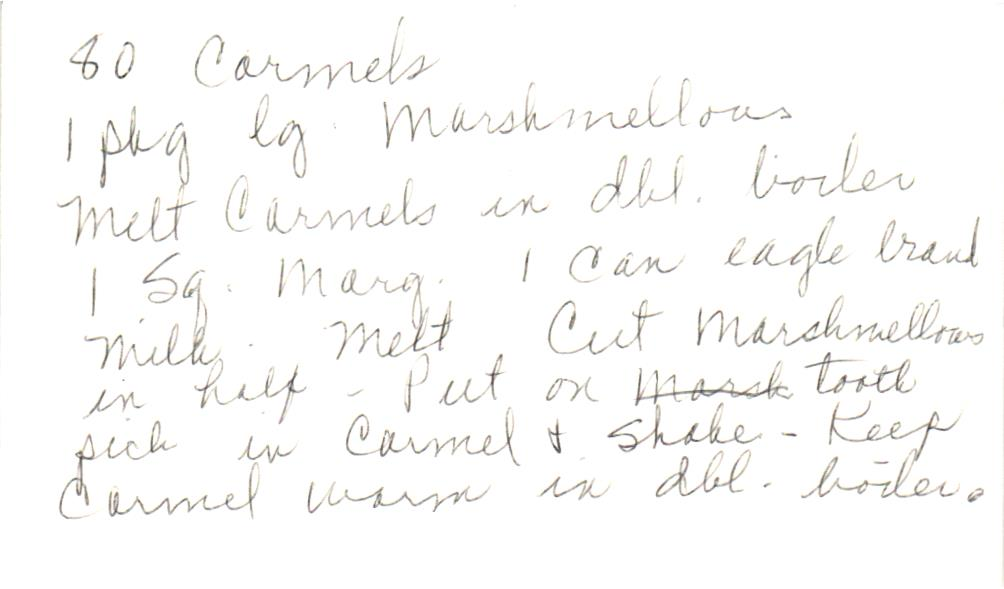 80 Carmels
1 pkg lg. Marshmellows
Melt Carmels in dbl. boiler
1 Sq. Marg. 1 Can eagle brand
Milk. Melt Cut Marshmellows
in half - Put on Marsh tooth
pick in Carmel & Shake - Keep
Carmel warm in dbl. boiler.